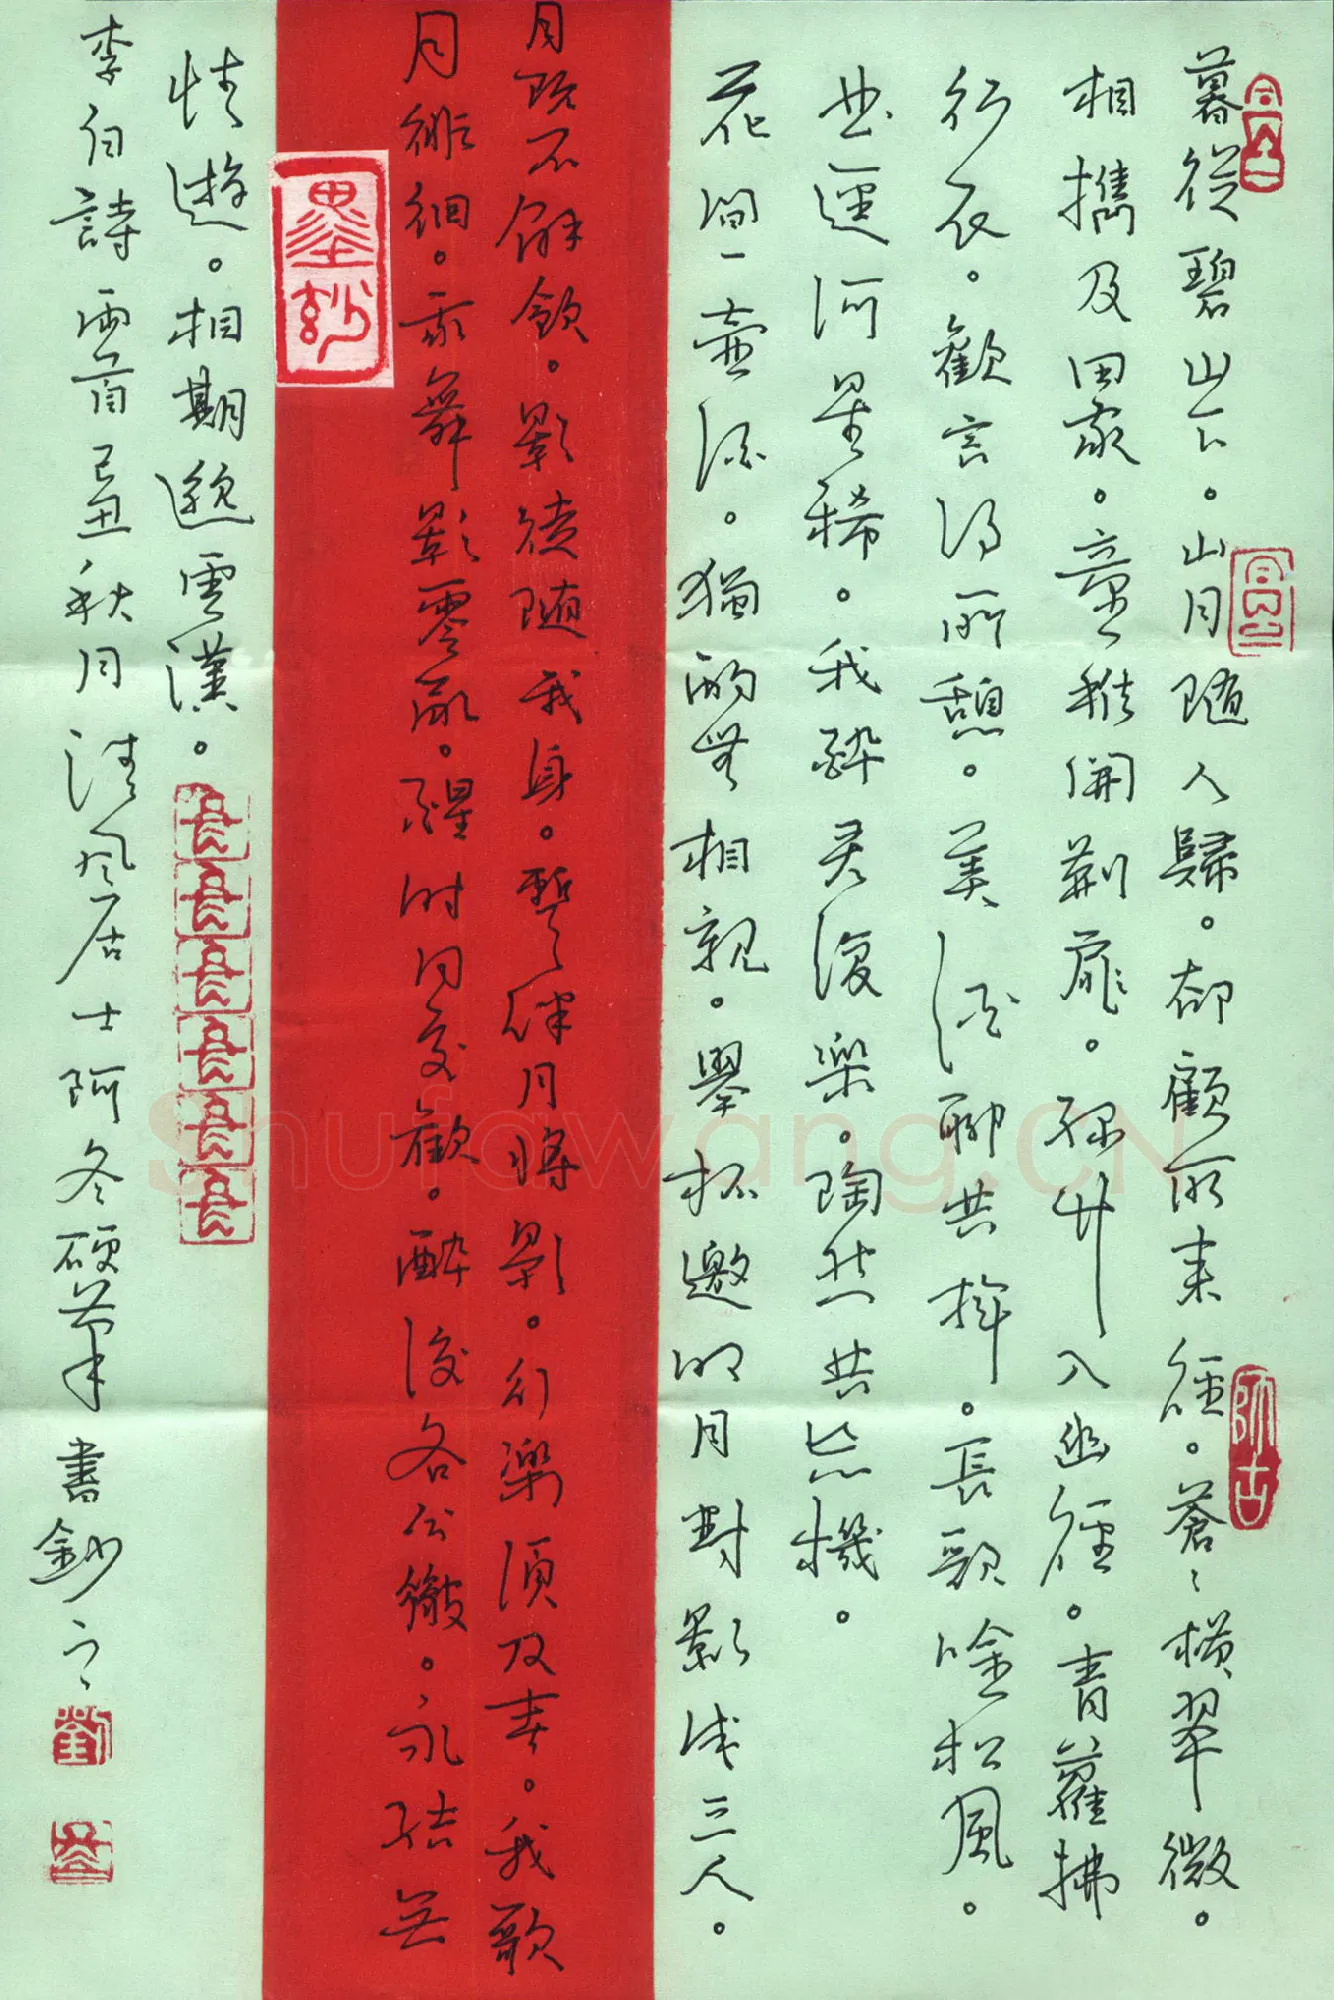 暮從碧山下。山月隨人歸。却顧所来徑。蒼〻橫翠微。
相攜及田家。童稚開荆扉。緑竹入幽徑。青蘿拂
行衣。歡言得所憩。美酒聊共揮。長歌唫松風。
曲迳河星稀。我醉君復樂。陶然共忘機。
花間一壺酒。獨酌無相親。舉杯邀明月對影成三人。
月既不解飲。影徒隨我身。暫伴月將影。行樂須及春。我歌
月徘徊。我舞影零亂。醒時同交歡。醉後各分散。永結無
情遊。相期邈雲漢。
李白詩兩首己丑秋月清風居士阿冬硬筆書鈔之
墨鈔
師古
劉
Shufawang.CN